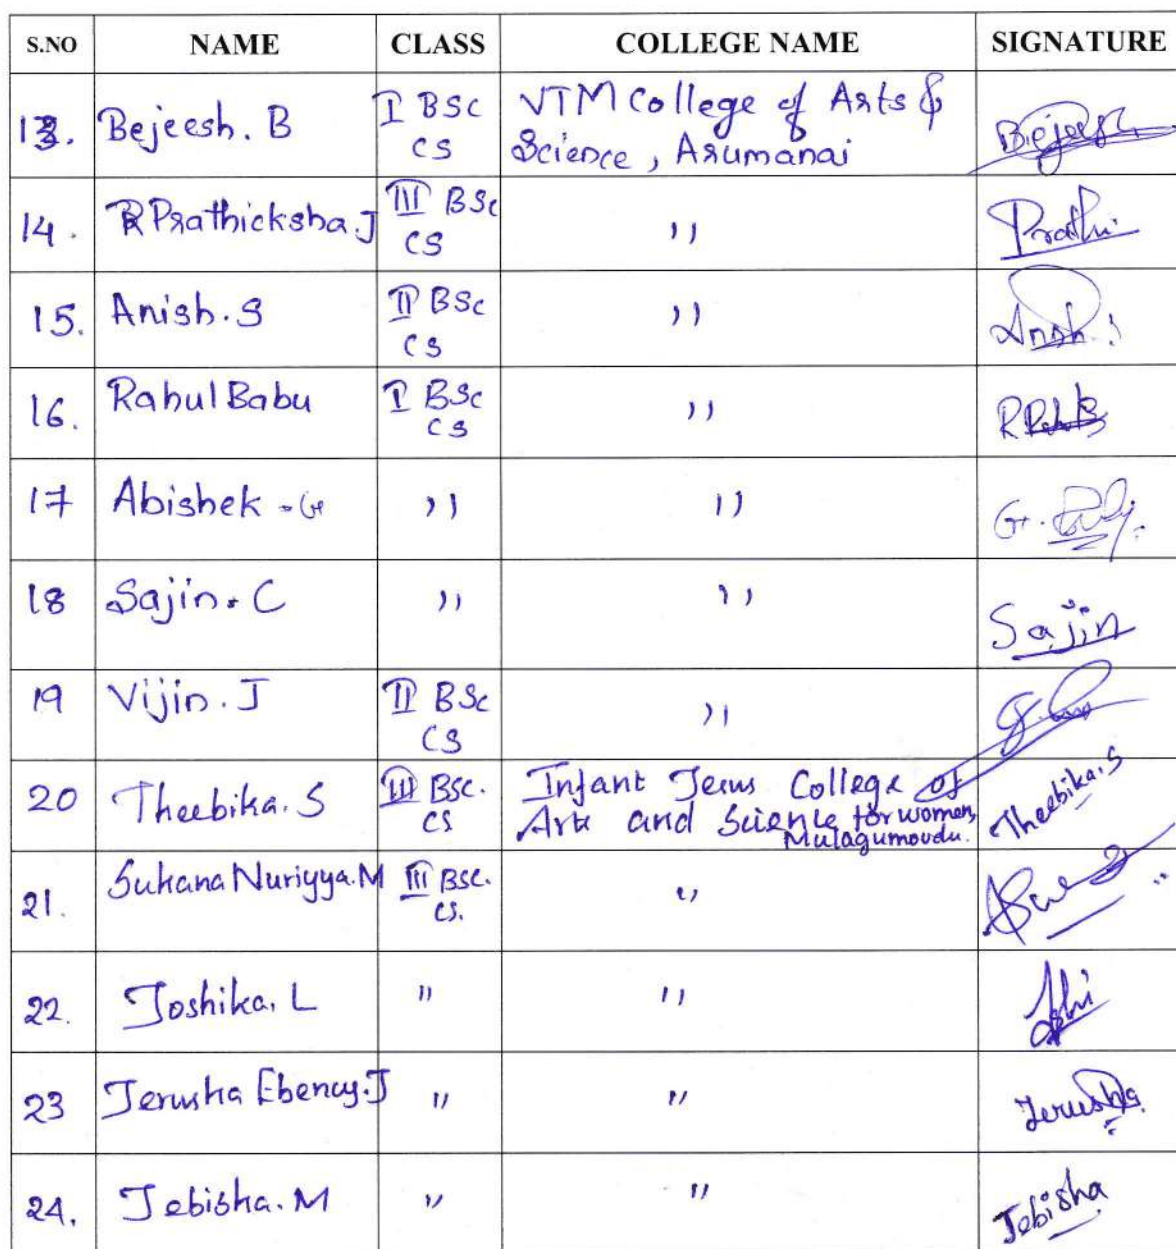 S.NO NAME CLASS COLLEGE NAME SIGNATURE
13. Bejeesh. B I BSC VTM College of Arts &
CS Science, Arumanai Bejeesh
14. Prathicksha. J III BSc ,, Prathi
CS
15. Anish. S II BSc ,, Anish. S
CS
16. Rahul Babu I BSc ,,
CS
17 Abishek - G ,, ,, G.
18 Sajin. C ,, ,, Sajin
19 Vijin. J II BSc ,,
CS
20 Theebika. S III BSC. Infant Jesus College of
CS Arts and Science for women, Theebika.S
Mulagumoodu.
21. Sukana Nuriyya. M III BSC. ,,
CS.
22. Joshika. L ,, ,,
23 Jerusha Ebency. J ,, ,, Jerusha
24. Jebisha. M ,, ,, Jebisha